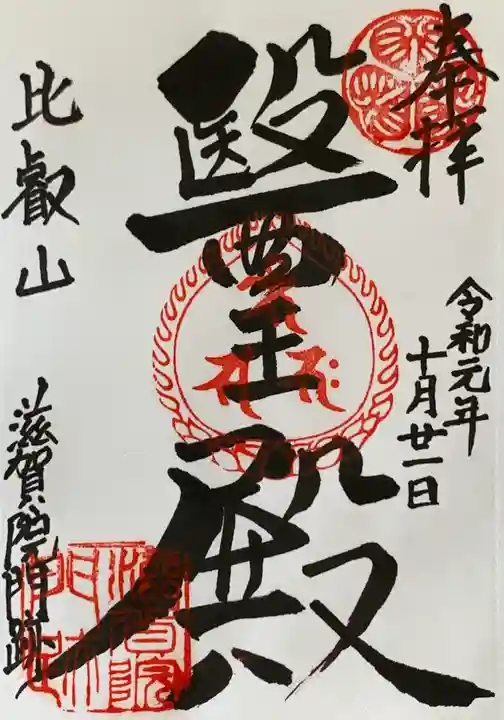 奉拝
令和元年
十月廿一日
醫王殿
比叡山
滋賀院門跡